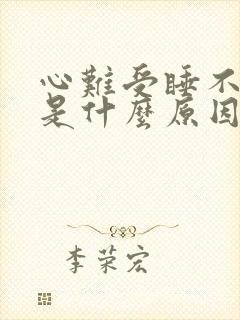 心難受睡不
是什麼原因
李荣宏